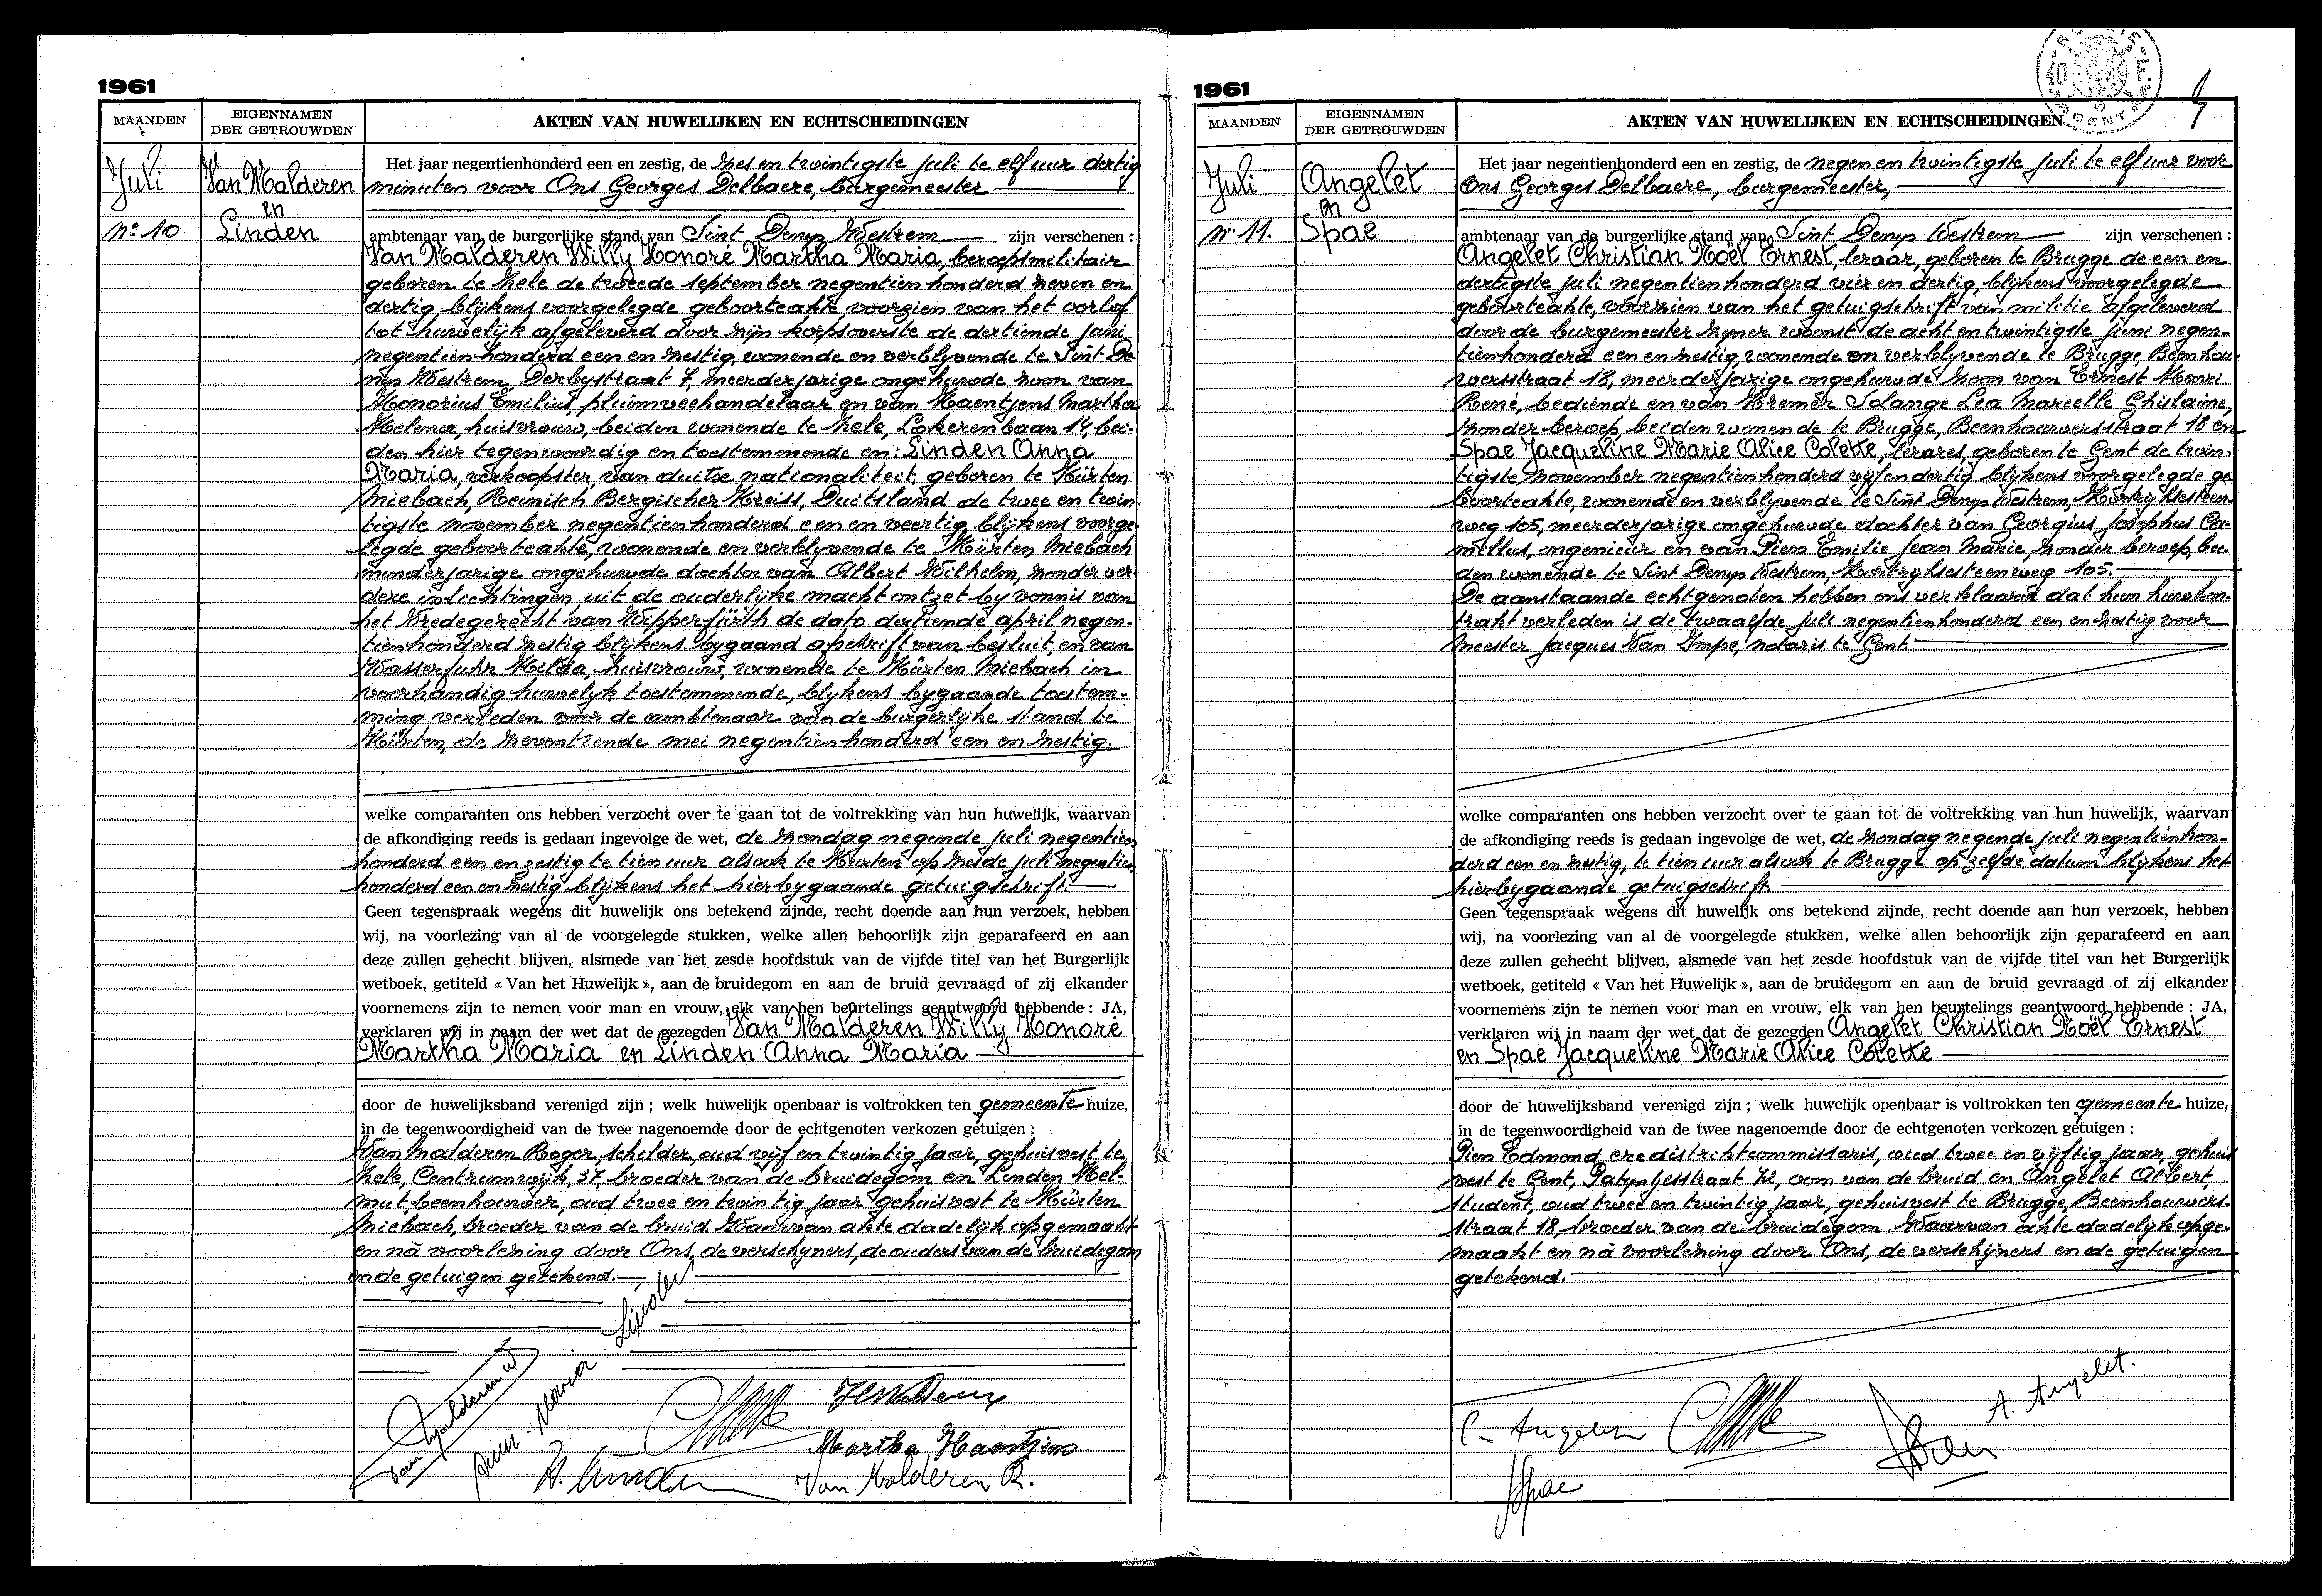 1961
MAANDEN
EIGENNAMEN
DER GETROUWDEN
AKTEN VAN HUWELIJKEN EN ECHTSCHEIDINGEN
Juli
Nº 10
Van Malderen
en
Linden
Het jaar negentienhonderd een en zestig, de zes en twintigste juli te elf uur dertig
minuten voor Ons Georges Delbaere, burgemeester
ambtenaar van de burgerlijke stand van Sint Denys Westrem zijn verschenen :
Van Malderen Willy Honoré Martha Maria, beroepsmilitair
geboren te Zele de tweede september negentien honderd zeven en
dertig blijkens voorgelegde geboorteakte, voorzien van het verlof
tot huwelijk afgeleverd door zijn korpsoverste de dertiende juni
negentienhonderd een en zestig, wonende en verblyvende te Sint De
nys Westrem, Derbystraat 7, meerderjarige ongehuwde zoon van
Honorius Emilius, pluimveehandelaar en van Haentjens Martha
Helena, huisvrouw, beiden wonende te Zele, Lokerenbaan 14, bei-
den hier tegenwoordig en toestemmende en: Linden Anna
Maria, verkoopster, van duitse nationaliteit, geboren te Kürten
Miebach, Reinisch Bergischer Kreiss, Duitsland de twee en twin
tigste november negentienhonderd een en veertig, blijkens voorge
legde geboorteakte, wonende en verblyvende te Kürten Miebach
minderjarige ongehuwde dochter van Albert Wilhelm, zonder ver-
dere inlichtingen uit de ouderlijke macht ontzet by vonnis van
het Vredegerecht van Wipperfürth de dato dertiende april negen-
tienhonderd zestig blijkens bygaand afschrift van besluit, en van
Wasserfuhr Helda, huisvrouw, wonende te Kürten Miebach in
voorhandig huwelyk toestemmende, blykens bygaande toestem-
ming verleden voor de ambtenaar van de burgerlyke stand te
Kürten, de zeventiende mei negentienhonderd een en zestig.
welke comparanten ons hebben verzocht over te gaan tot de voltrekking van hun huwelijk, waarvan
de afkondiging reeds is gedaan ingevolge de wet, de zondag negende juli negentien
honderd een en zestig te tien uur alsook te Kürten op zelfde juli negentien
honderd een en zestig blijkens het hierbygaande getuigschrift.
Geen tegenspraak wegens dit huwelijk ons betekend zijnde, recht doende aan hun verzoek, hebben
wij, na voorlezing van al de voorgelegde stukken, welke allen behoorlijk zijn geparafeerd en aan
deze zullen gehecht blijven, alsmede van het zesde hoofdstuk van de vijfde titel van het Burgerlijk
wetboek, getiteld « Van het Huwelijk », aan de bruidegom en aan de bruid gevraagd of zij elkander
voornemens zijn te nemen voor man en vrouw, elk van hen beurtelings geantwoord hebbende : JA,
verklaren wij in naam der wet dat de gezegden Van Malderen Willy Honoré
Martha Maria en Linden Anna Maria
door de huwelijksband verenigd zijn ; welk huwelijk openbaar is voltrokken ten gemeente huize,
in de tegenwoordigheid van de twee nagenoemde door de echtgenoten verkozen getuigen :
Van Malderen Roger, schilder, oud vijf en twintig jaar, gehuisvest te
Zele, Centrumwijk, 37, broeder van de bruidegom en Linden Hel-
mut beenhouwer, oud twee en twintig jaar gehuisvest te Kürten
Miebach, broeder van de bruid. Waarvan akte dadelijk opgemaakt
en nà voorlezing door Ons, de verschyners, de ouders van de bruidegom
en de getuigen getekend.
Van Malderen W
Anna-Maria Linden
H. Linden
Martha Haentjens
Van Malderen R.
1961
MAANDEN
EIGENNAMEN
DER GETROUWDEN
AKTEN VAN HUWELIJKEN EN ECHTSCHEIDINGEN
40 F.
GENT
Juli
Nº 11.
Angelet
en
Spae
Het jaar negentienhonderd een en zestig, de negen en twintigste juli te elf uur voor
Ons Georges Delbaere, burgemeester,
ambtenaar van de burgerlijke stand van Sint Denys Westrem zijn verschenen :
Angelet Christian Noël Ernest, leraar, geboren te Brugge de een en
dertigste juli negentienhonderd vier en dertig, blijkens voorgelegde
geboorteakte, voorzien van het getuigschrift van militie afgeleverd
door de burgemeester zyner woonst de acht en twintigste juni negen-
tienhonderd een en zestig, wonende en verblyvende te Brugge, Beenhou-
wersstraat 18, meerderjarige ongehuwde zoon van Ernest Henri
René, bediende en van Kremer Solange Lea Marcelle Ghislaine,
zonder beroep, beiden wonende te Brugge, Beenhouwersstraat 18 en
Spae Jacqueline Marie Alice Colette, lerares, geboren te Gent de twin-
tigste november negentienhonderd vijf en dertig blijkens voorgelegde ge
boorteakte, wonende en verblyvende te Sint Denys Westrem, Kortryksesteen-
weg 105, meerderjarige ongehuwde dochter van Georgius Josephus Ca-
millus, ingenieur en van Piens Emilie Jean Marie, zonder beroep, bei-
den wonende te Sint Denys Westrem, Kortryksesteenweg 105.
De aanstaande echtgenoten hebben ons verklaard dat hun huwkon-
trakt verleden is de twaalfde juli negentienhonderd een en zestig voor
Meester Jacques Van Impe, notaris te Gent
welke comparanten ons hebben verzocht over te gaan tot de voltrekking van hun huwelijk, waarvan
de afkondiging reeds is gedaan ingevolge de wet, de zondag negende juli negentienhon-
derd een en zestig, te tien uur alsook te Brugge op zelfde datum blijkens het
hierbygaande getuigschrift.
Geen tegenspraak wegens dit huwelijk ons betekend zijnde, recht doende aan hun verzoek, hebben
wij, na voorlezing van al de voorgelegde stukken, welke allen behoorlijk zijn geparafeerd en aan
deze zullen gehecht blijven, alsmede van het zesde hoofdstuk van de vijfde titel van het Burgerlijk
wetboek, getiteld « Van het Huwelijk », aan de bruidegom en aan de bruid gevraagd of zij elkander
voornemens zijn te nemen voor man en vrouw, elk van hen beurtelings geantwoord hebbende : JA,
verklaren wij in naam der wet dat de gezegden Angelet Christian Noël Ernest
en Spae Jacqueline Marie Alice Colette
door de huwelijksband verenigd zijn ; welk huwelijk openbaar is voltrokken ten gemeente huize,
in de tegenwoordigheid van de twee nagenoemde door de echtgenoten verkozen getuigen :
Piens Edmond, ere distriktcommissaris, oud twee en vijftig jaar, gehuis
vest te Gent, Patyntjesstraat 72, oom van de bruid en Angelet Albert,
student, oud twee en twintig jaar, gehuisvest te Brugge, Beenhouwers-
straat 18, broeder van de bruidegom. Waarvan akte dadelyk opge-
maakt en nà voorlezing door Ons, de verschijners en de getuigen
getekend.
C. Angelet
A. Angelet.
JSpae